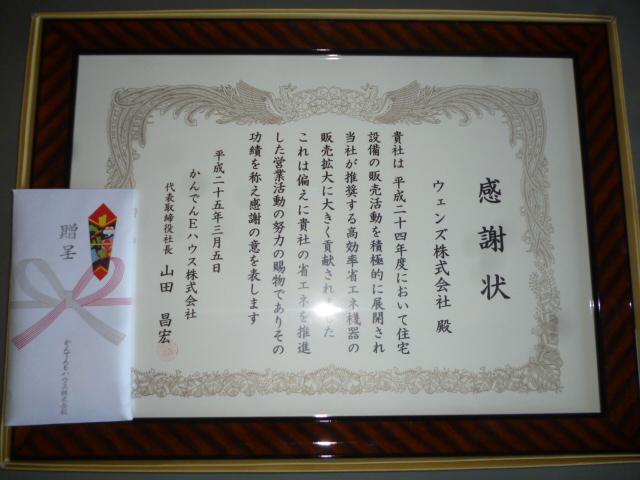 感謝状
ウェンズ株式会社 殿
貴社は 平成二十四年度において住宅
設備の販売活動を積極的に展開され
当社が推奨する高効率省エネ機器の
販売拡大に大きく貢献されました
これは偏えに貴社の省エネを推進
した営業活動の努力の賜物でありその
功績を称え感謝の意を表します
平成二十五年三月五日
かんでんEハウス株式会社
代表取締役社長 山田 昌宏
贈呈
かんでんEハウス株式会社